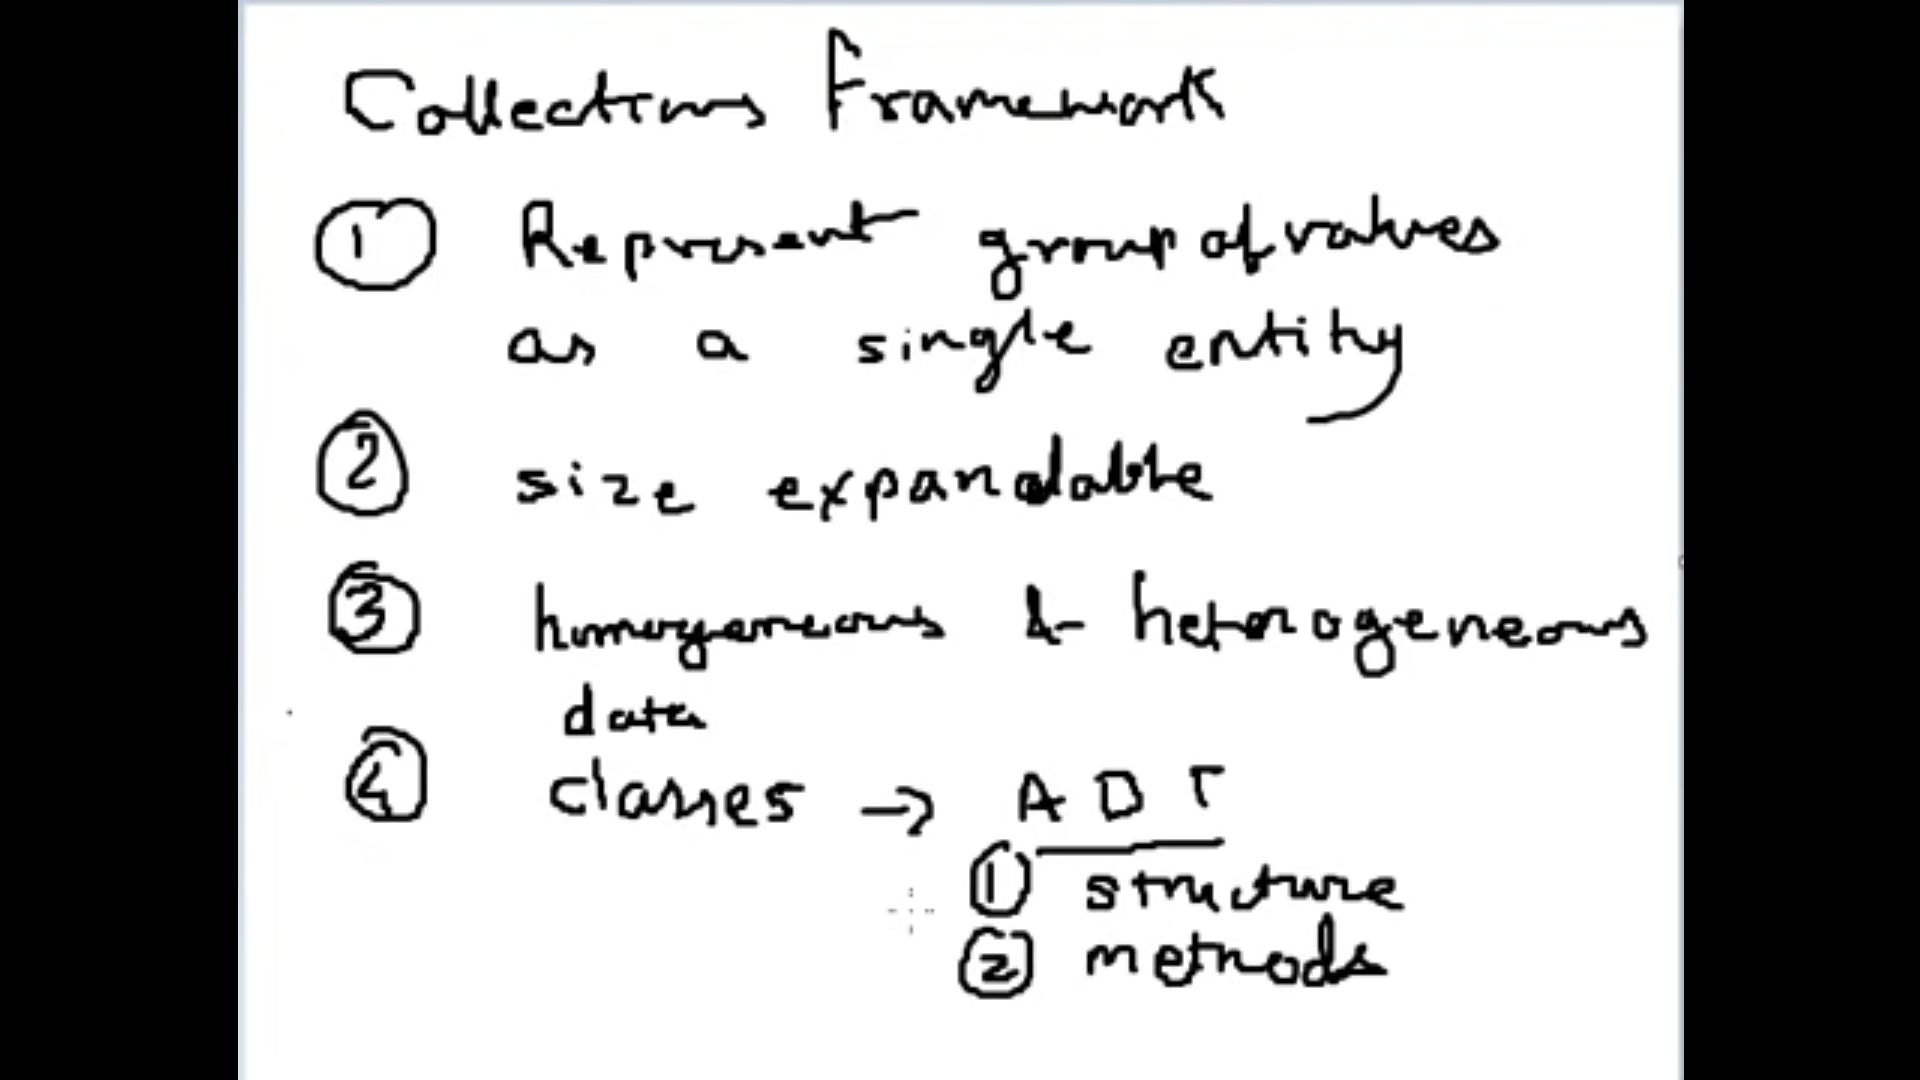 Collections Framework
① Represent group of values
as a single entity
② size expandable
③ homogeneous & heterogeneous
data
④ classes → ADT
① structure
② methods